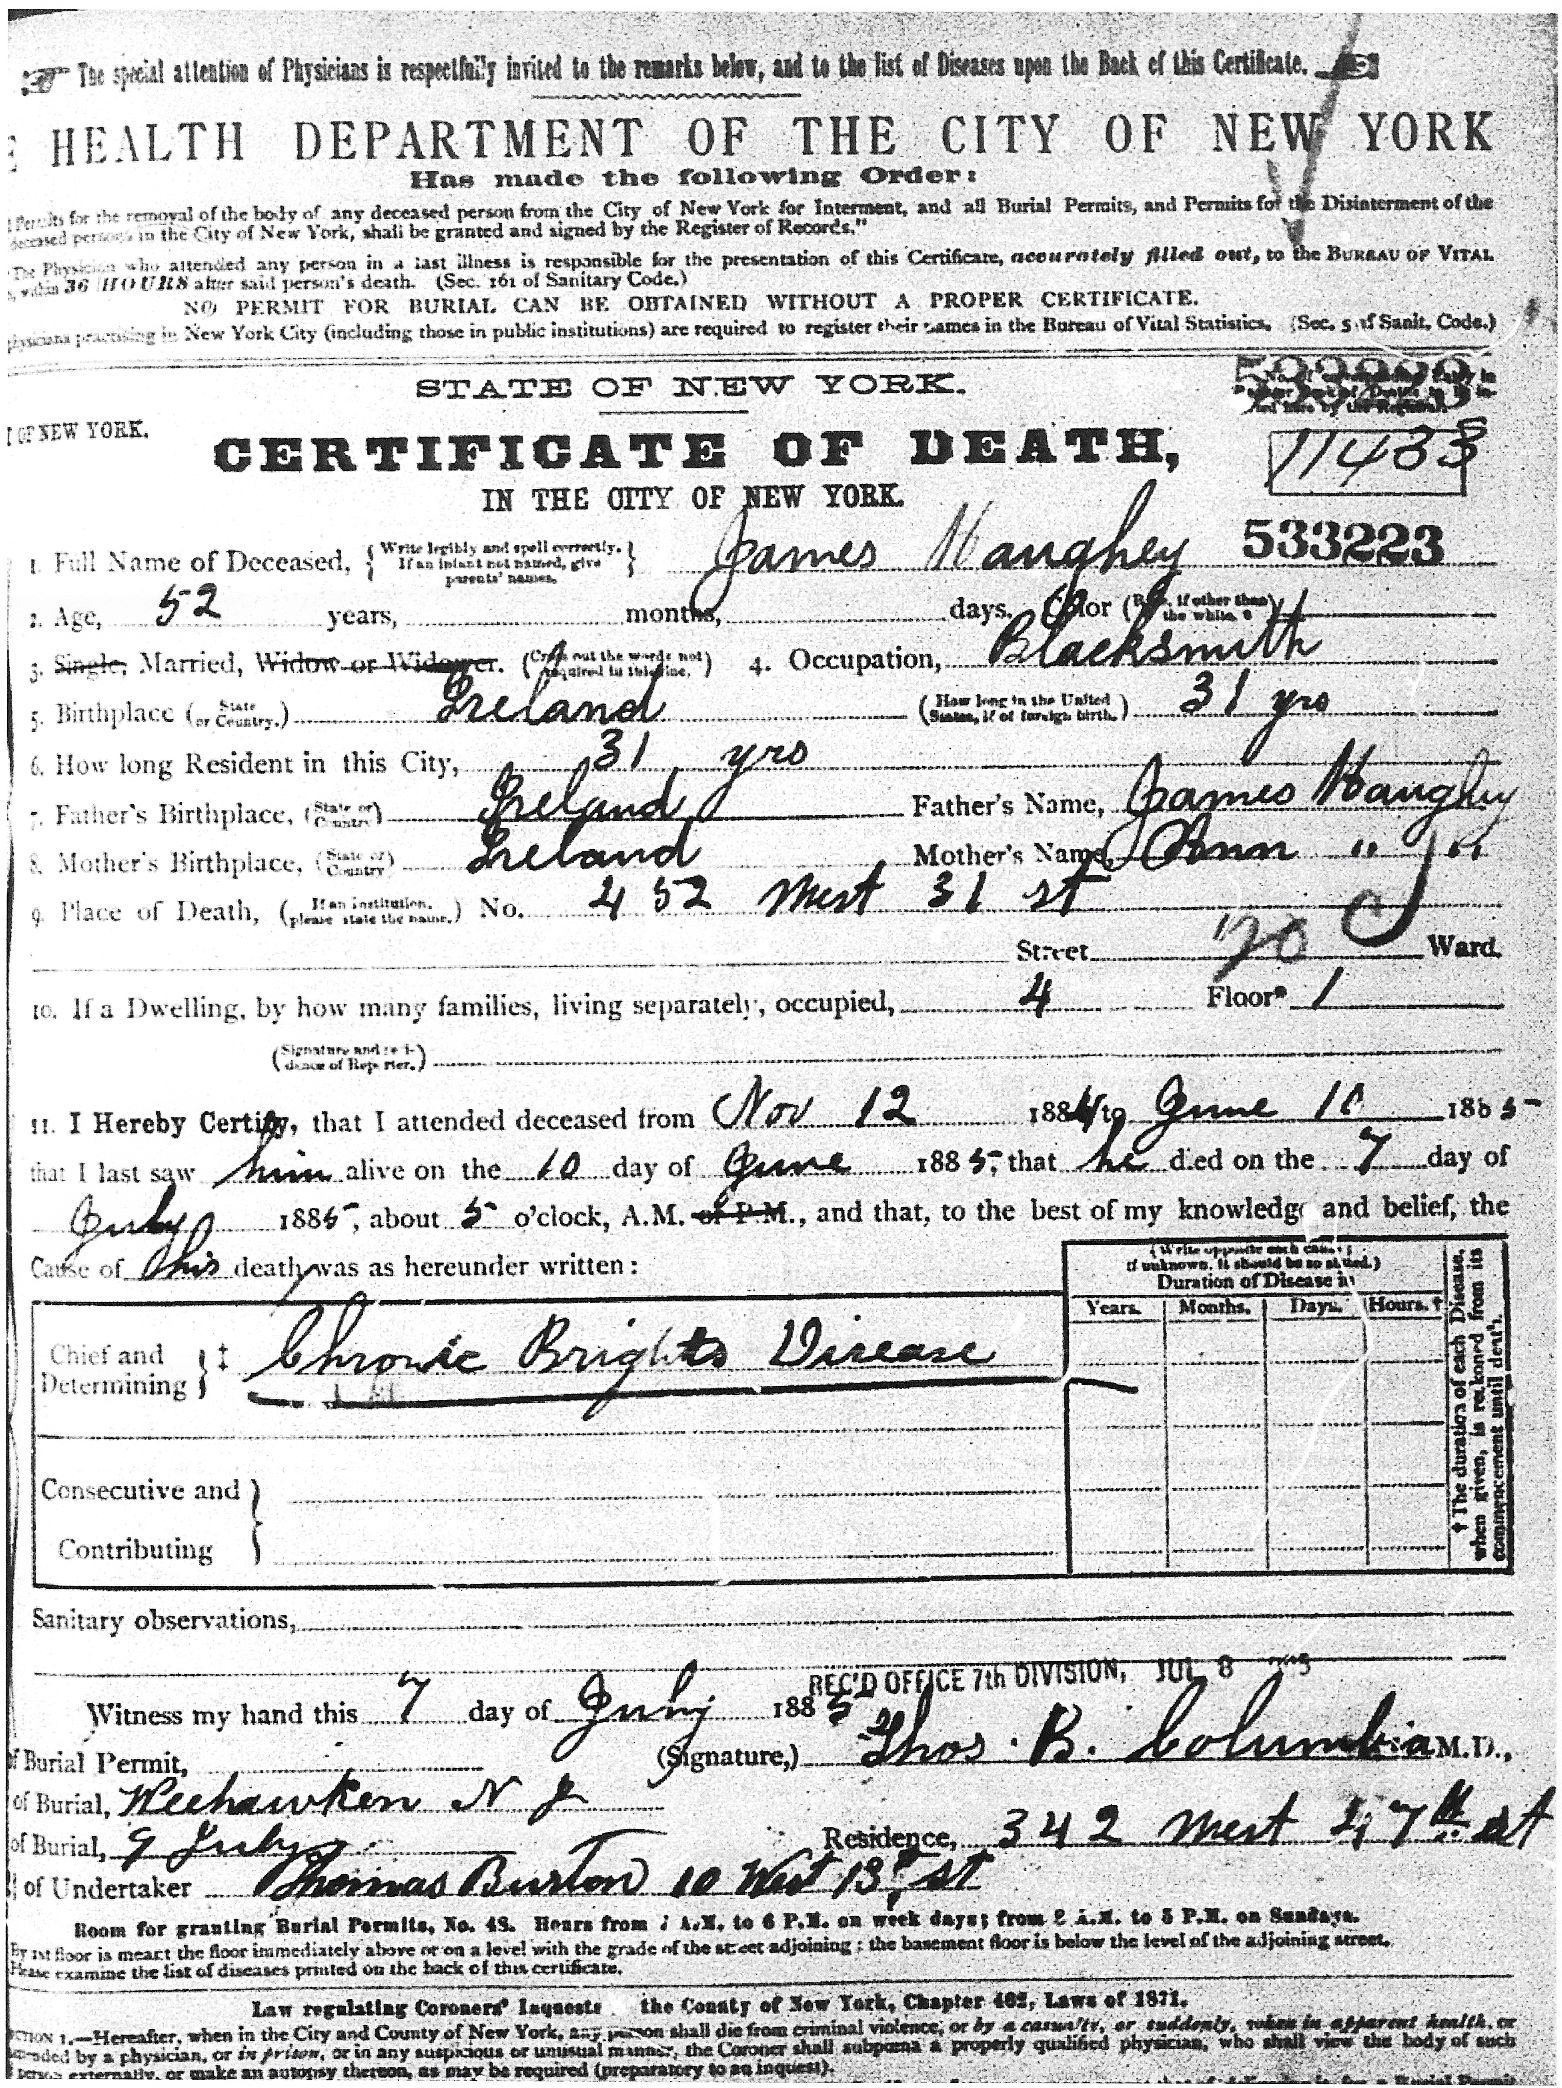 The special attention of Physicians is respectfully invited to the remarks below, and to the list of Diseases upon the Back of this Certificate.
E HEALTH DEPARTMENT OF THE CITY OF NEW YORK
Has made the following Order:
Permits for the removal of the body of any deceased person from the City of New York for Interment, and all Burial Permits, and Permits for the Disinterment of the
deceased persons in the City of New York, shall be granted and signed by the Register of Records."
The Physician who attended any person in a last illness is responsible for the presentation of this Certificate, accurately filled out, to the BUREAU OF VITAL
within 36 HOURS after said person's death. (Sec. 161 of Sanitary Code.)
NO PERMIT FOR BURIAL CAN BE OBTAINED WITHOUT A PROPER CERTIFICATE.
physicians practising in New York City (including those in public institutions) are required to register their names in the Bureau of Vital Statistics. (Sec. 5 of Sanit. Code.)
STATE OF NEW YORK.
OF NEW YORK.
CERTIFICATE OF DEATH,
11433
IN THE CITY OF NEW YORK.
1. Full Name of Deceased, {Write legibly and spell correctly. If an infant not named, give parents' names.} James Haughey 533223
2. Age, 52 years, months, days. Color
3. Single, Married, Widow or Widower. (Cross out the words not required in this line.) 4. Occupation, Blacksmith
5. Birthplace (State or Country.) Ireland (How long in the United States, if of foreign birth.) 31 yrs
6. How long Resident in this City, 31 yrs
7. Father's Birthplace, (State or Country) Ireland Father's Name, James Haughey
8. Mother's Birthplace, (State or Country) Ireland Mother's Name, Ann " "
9. Place of Death, (If an institution, please state the name.) No. 452 West 31 st
Street 20 Ward.
10. If a Dwelling, by how many families, living separately, occupied, 4 Floor 1
(Signature and residence of Reporter.)
11. I Hereby Certify, that I attended deceased from Nov 12 1884 to June 10 1885
that I last saw him alive on the 10 day of June 1885, that he died on the 7 day of
July 1885, about 5 o'clock, A.M. or P.M., and that, to the best of my knowledge and belief, the
Cause of his death was as hereunder written:
(Write opposite each cause; if unknown, it should be so stated.)
Duration of Disease in
Years. Months. Days. Hours. †
Chief and Determining } ‡ Chronic Brights Disease
Consecutive and Contributing }
† The duration of each Disease, when given, is reckoned from its commencement until death.
Sanitary observations,
REC'D OFFICE 7th DIVISION, JUL 8
Witness my hand this 7 day of July 1885
of Burial Permit, (Signature,) Thos. B. Columbia M.D.,
of Burial, Weehawken N J
of Burial, 9 July Residence, 342 West 47th st
of Undertaker Thomas Burton 10 West 13th st
Room for granting Burial Permits, No. 48. Hours from 7 A.M. to 6 P.M. on week days; from 8 A.M. to 5 P.M. on Sundays.
By 1st floor is meant the floor immediately above or on a level with the grade of the street adjoining; the basement floor is below the level of the adjoining street.
Please examine the list of diseases printed on the back of this certificate.
Law regulating Coroners' Inquests the County of New York, Chapter 462, Laws of 1871.
SECTION 1.—Hereafter, when in the City and County of New York, any person shall die from criminal violence, or by a casualty, or suddenly, when in apparent health, or
attended by a physician, or in prison, or in any suspicious or unusual manner, the Coroner shall subpœna a properly qualified physician, who shall view the body of such
person externally, or make an autopsy thereon, as may be required (preparatory to an inquest).